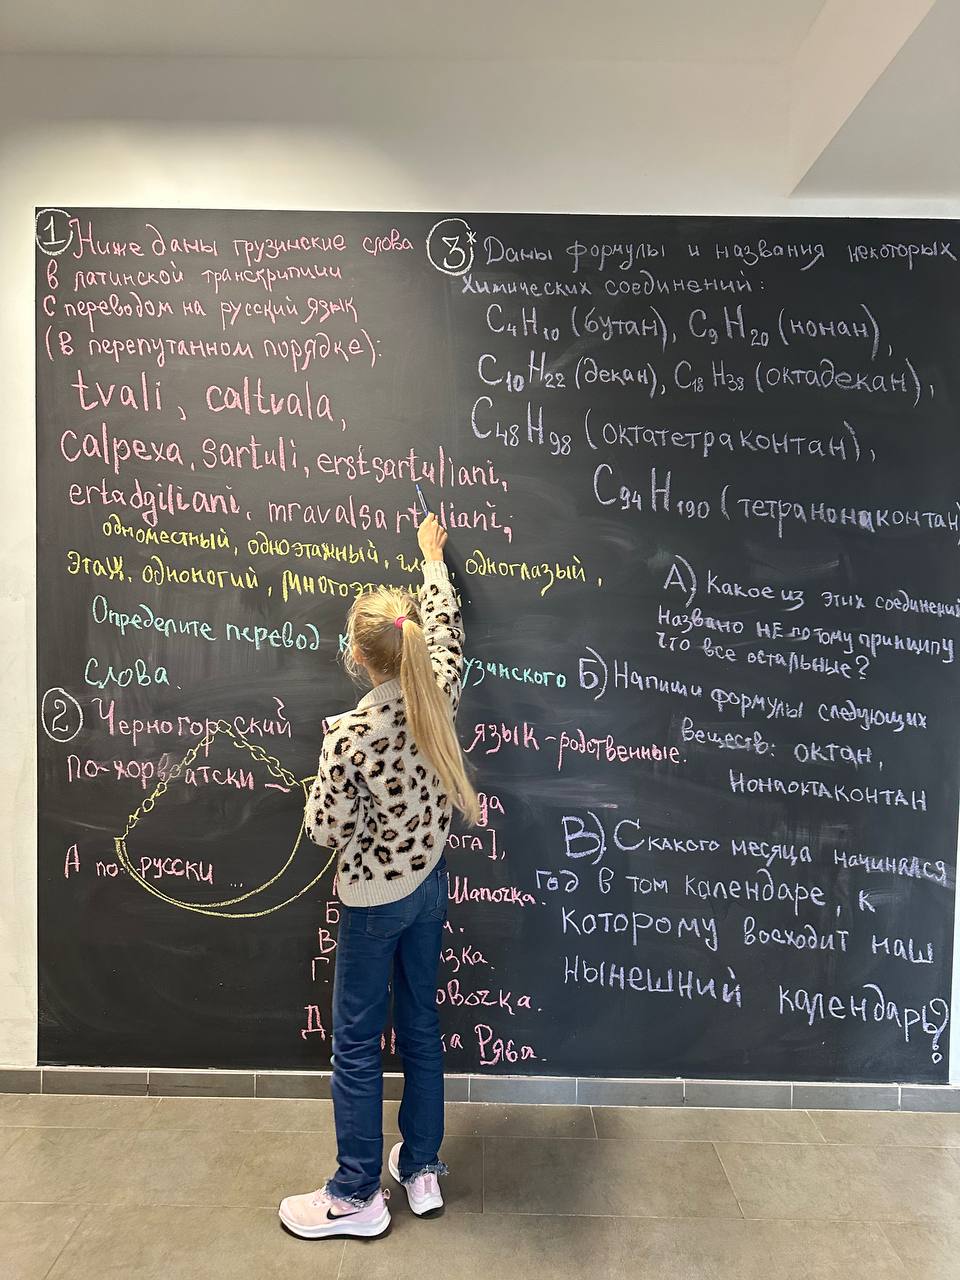 1 Ниже даны грузинские слова
в латинской транскрипции
с переводом на русский язык
(в перепутанном порядке):
tvali, caltvala,
calpexa, sartuli, erstsartuliani,
ertadgiliani, mravalsartuliani;
одноместный, одноэтажный, одноглазый,
этаж, одноногий,
Определите перевод
слова.
2 Черногорский
язык - родственные.
по-хорватски –
А по-русски ...
Шапочка.
Б
В
Г.
Д
Ряба.
3* Даны формулы и названия некоторых
химических соединений:
C4H10 (бутан), C9H20 (нонан),
C10H22 (декан), C18H38 (октадекан),
C48H98 (октатетраконтан),
C94H190 (тетранонаконтан)
А) Какое из этих соединений
названо НЕ по тому принципу
что все остальные?
Б) Напиши формулы следующих
веществ: октан,
нонаоктаконтан
В) С какого месяца начинался
год в том календаре, к
которому восходит наш
нынешний календарь?